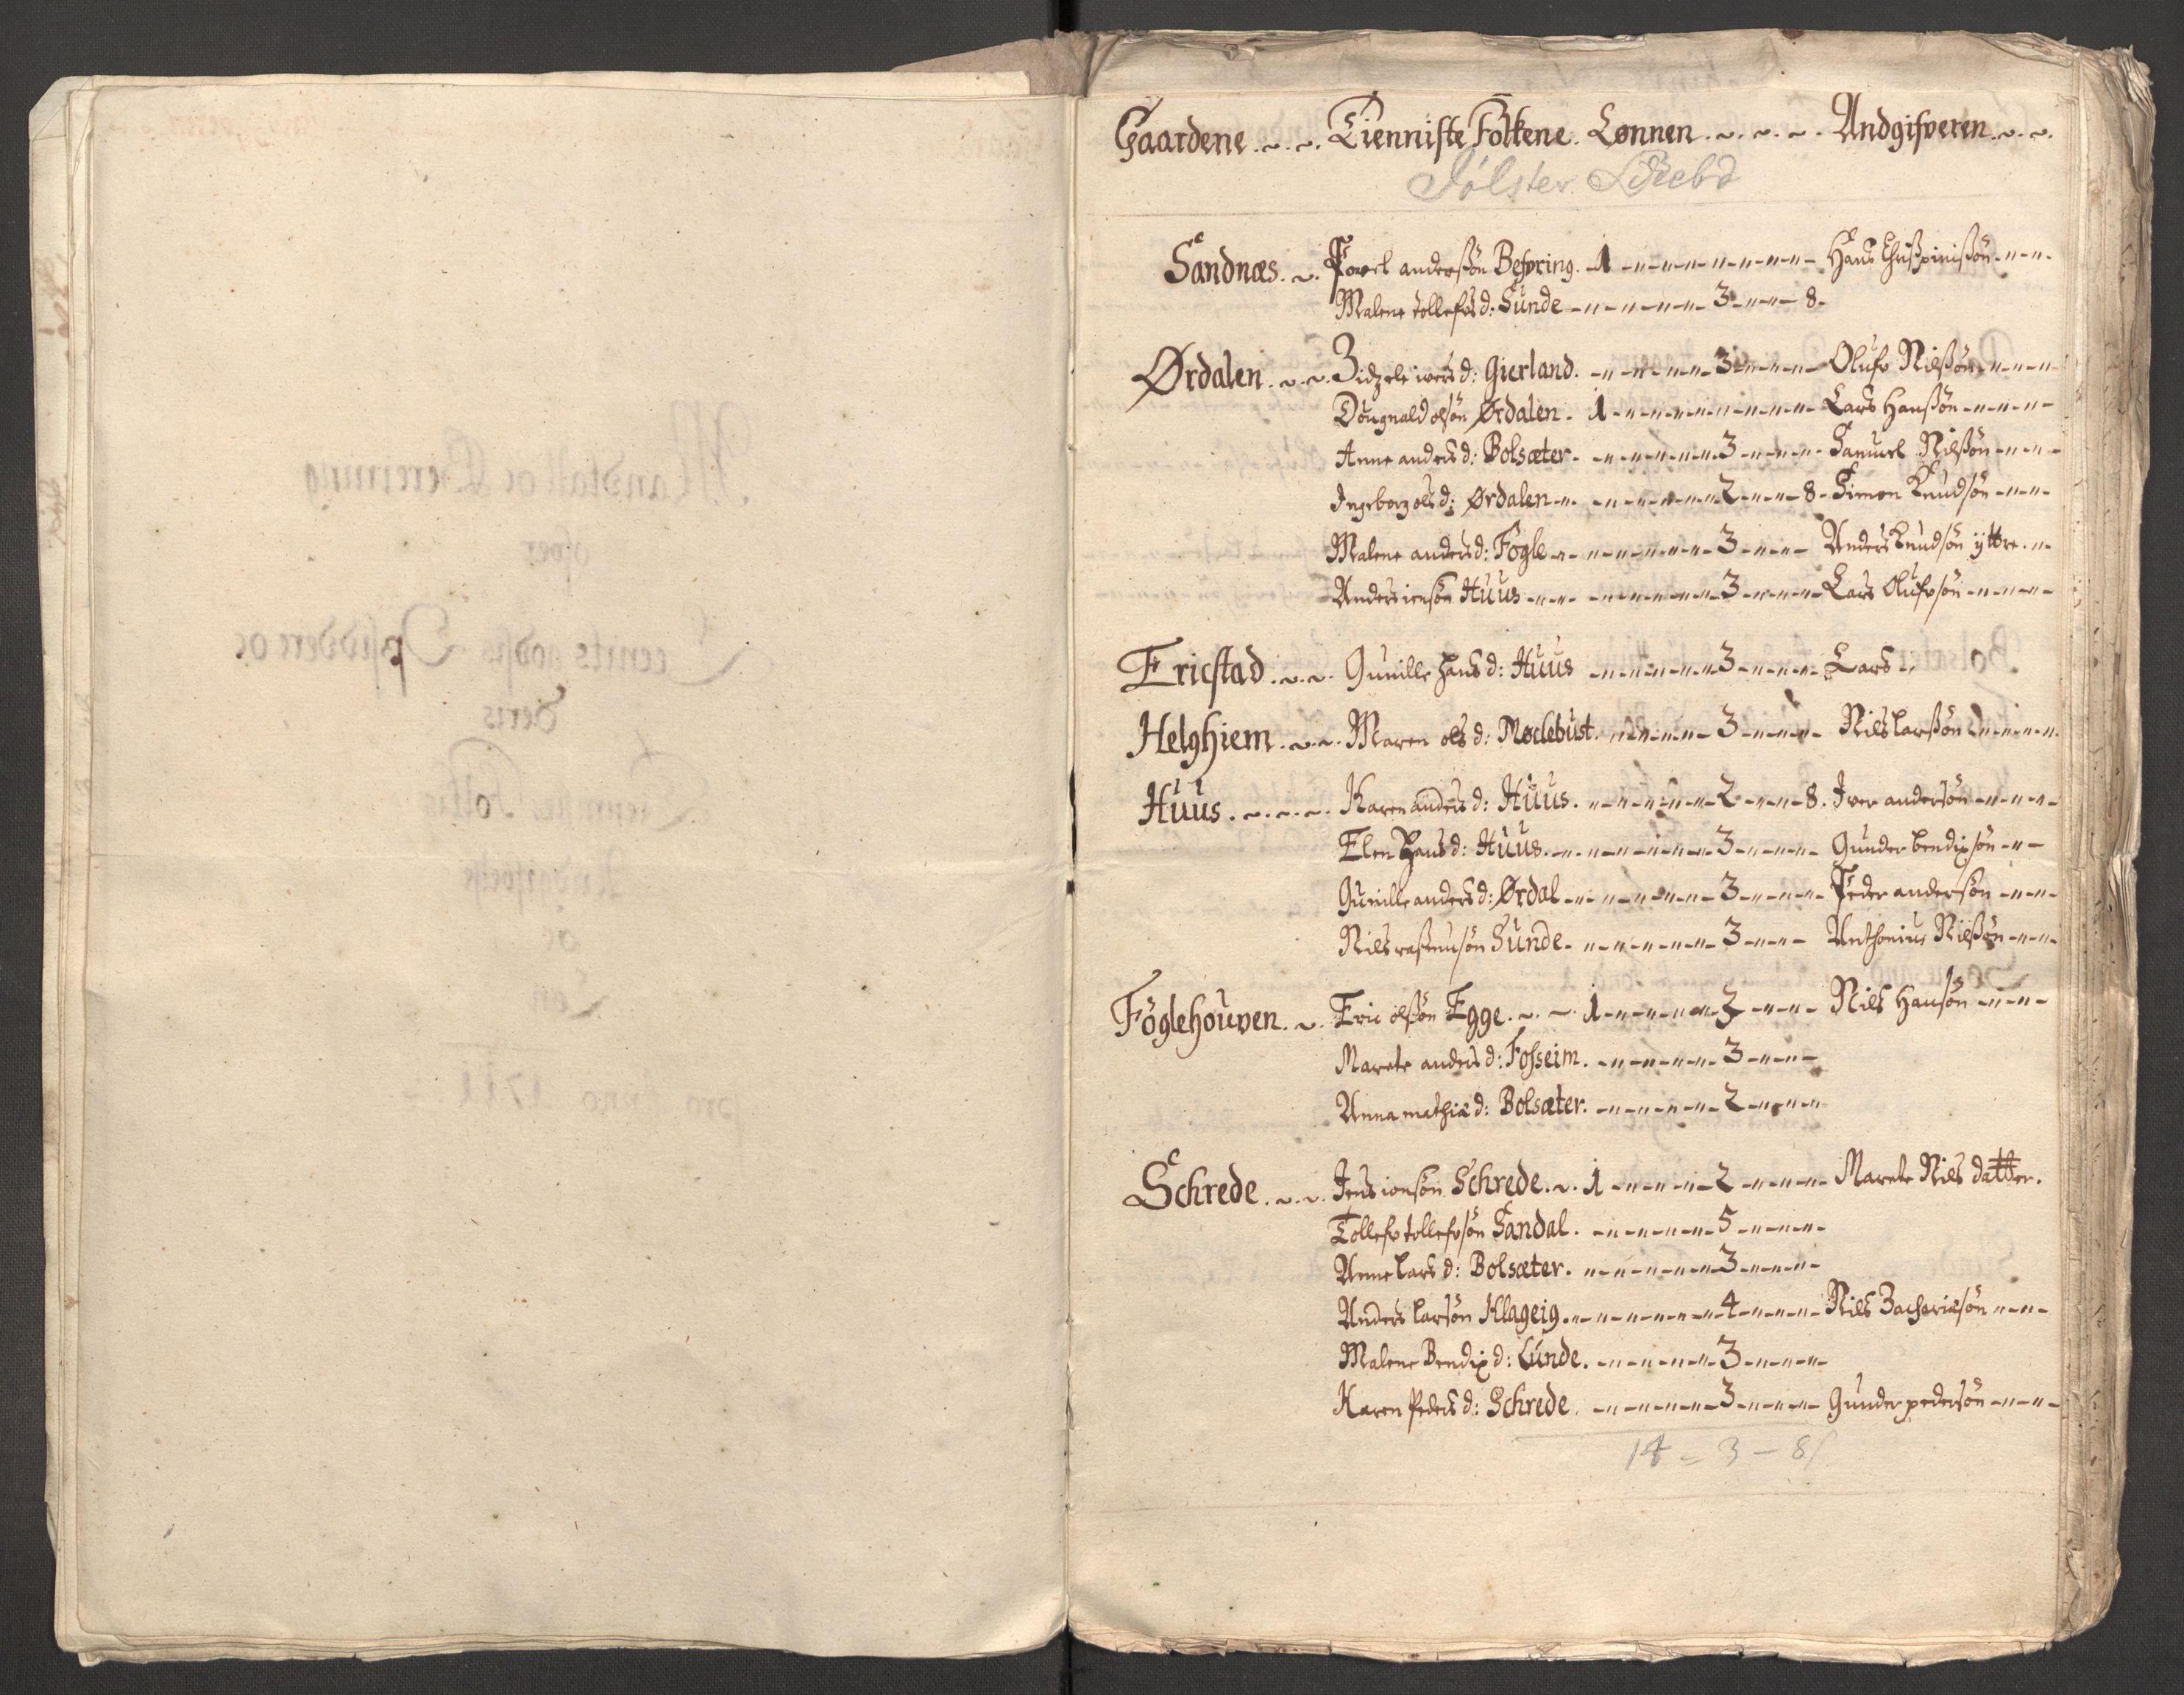 Gaardene . Tienniste Folkene . Lønnen . Andgifveren .
Jølster
Sandnæs . Povel anderßøn Befring . 1 Hans Chrispinißøn
Malene tollefsd: Sunde 3 8
Ørdalen . Zidzele ivers d: Gierland . 3 Olufv Nielßøn
Dougnald olsøn Ørdalen . 1 Lars Hanßøn
Anne anders d: Bolsæter . 3 Samuel Nielßøn
Ingeborg ols d: Ørdalen 2 8 Simon Knudsøn
Malene anders d: Fögle 3 Anders Knudsøn ÿttre
Anders iensøn Huus 3 Lars Olufvsøn
Ericstad . Gunille Hans d: Huus 3 Lars
Helghiem . Maren ols d: Møclebust . 3 Niels Larßøn
Huus . Karen anders d: Huus . 2 8 . Iver andersøn
Elen Hans d: Huus . 3 Gunder bendixsøn
Gunille anders d: Ørdal 3 Peder andersøn
Niels raßmusøn Sunde . 3 Anthonius Nielßøn
Föglehouven . Eric olßøn Egge . 1 3 Niels Hansøn
Marete anders d: Fosseim . 3
Anna mathias d: Bolsæter . 2
Schrede . Jens ionsøn Schrede . 1 2 Marete Niels datter .
Tollefv tollefvsøn Sandal . 5
Anne Lars d: Bolsæter . 3
Anders Larsøn Klageig . 4 Niels Zachariasøn
Malene Bendix d: Lunde . 3
Karen Peders d: Schrede . 3 Gunder pedersøn
14 - 3 - 8